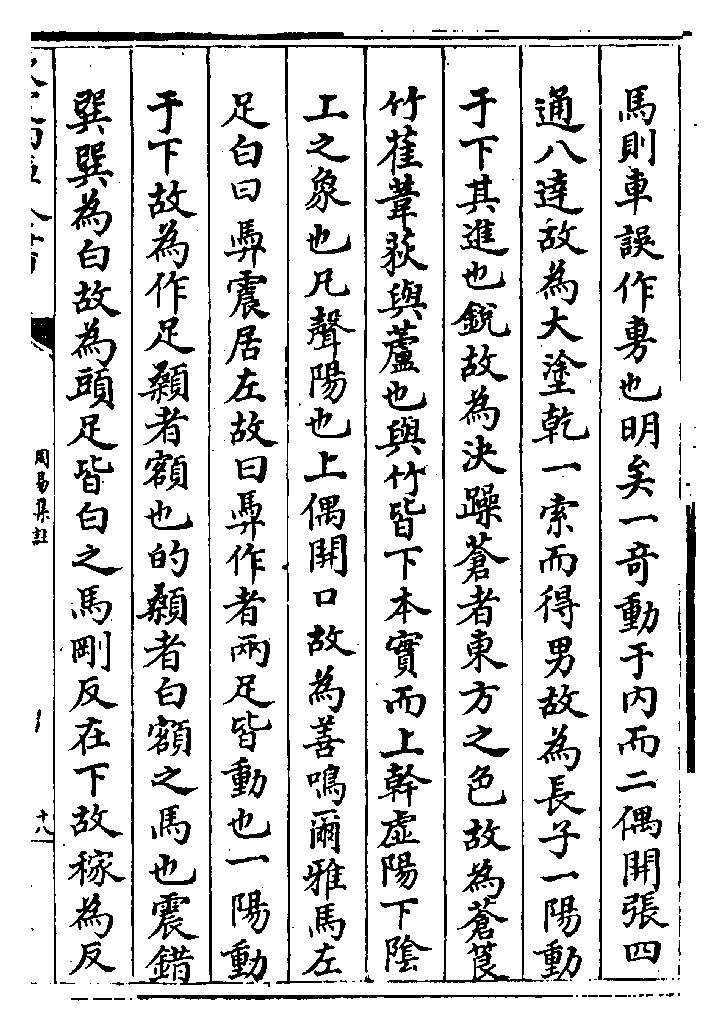 馬則車誤作旉也明矣一奇動于内而二偶開張四
通八達故為大塗乾一索而得男故為長子一陽動
于下其進也銳故為決躁蒼者東方之色故為蒼筤
竹萑葦荻與蘆也與竹皆下本實而上幹虛陽下陰
上之象也凡聲陽也上偶開口故為善鳴爾雅馬左
足白曰馵震居左故曰馵作者兩足皆動也一陽動
于下故為作足顙者額也的顙者白額之馬也震錯
巽巽為白故為頭足皆白之馬剛反在下故稼為反
周易集註
十八